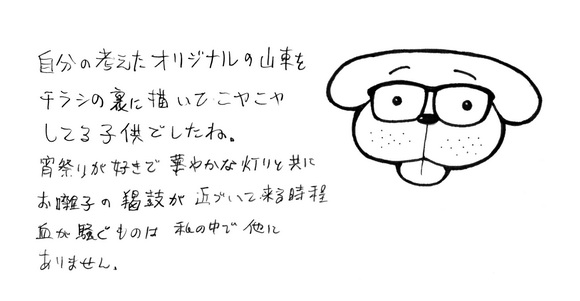 自分の考えたオリジナルの山車を
チラシの裏に描いてニヤニヤ
してる子供でしたね。
宵祭りが好きで華やかな灯りと共に
お囃子の鞨鼓が近づいて来る時程
血が騒ぐものは私の中で他に
ありません。